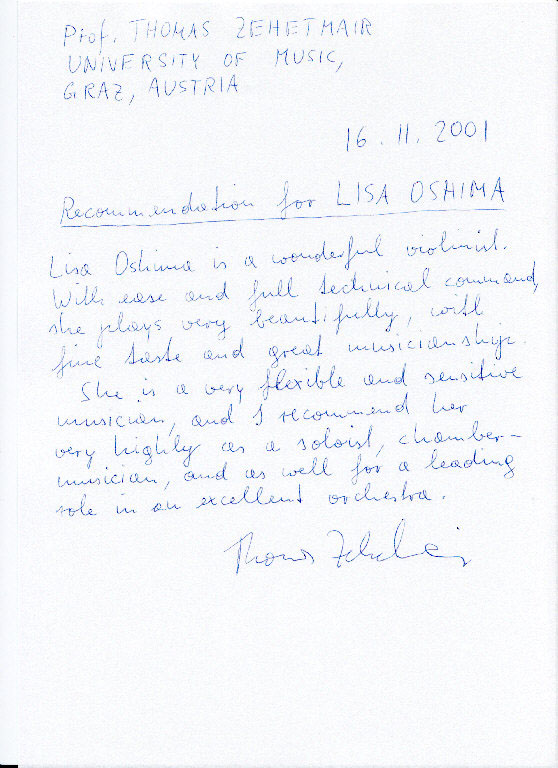 Prof. THOMAS ZEHETMAIR
UNIVERSITY OF MUSIC,
GRAZ, AUSTRIA
16.11.2001
Recommendation for LISA OSHIMA
Lisa Oshima is a wonderful violinist.
With ease and full technical command,
she plays very beautifully, with
fine taste and great musicianship.
She is a very flexible and sensitive
musician, and I recommend her
very highly as a soloist, chamber-
musician, and as well for a leading
role in an excellent orchestra.
Thomas Zehetmair